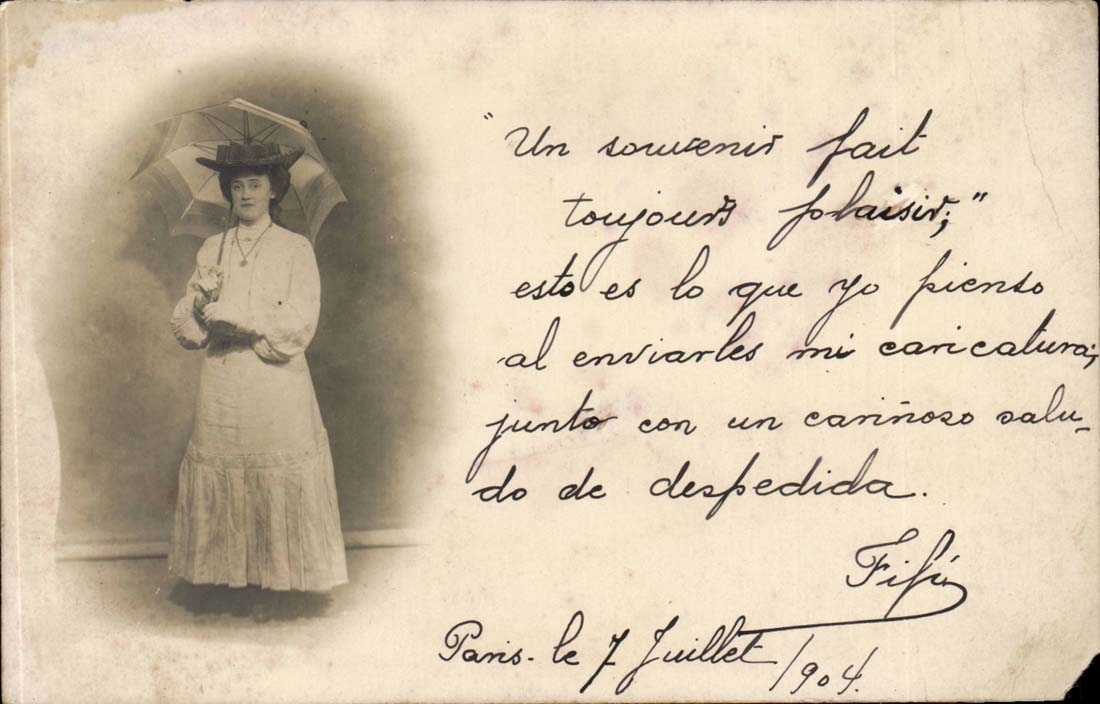 "Un souvenir fait
toujours plaisir;"
esto es lo que yo pienso
al enviarles mi caricatura;
junto con un cariñoso salu-
do de despedida.
Fifí
Paris. le 7 Juillet/1904.